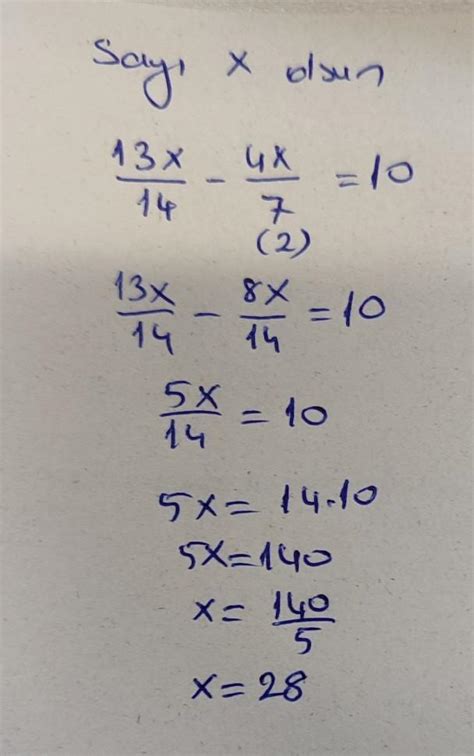 Sayı x olsun
13x/14 - 4x/7 = 10
(2)
13x/14 - 8x/14 = 10
5x/14 = 10
5x = 14.10
5x = 140
x = 140/5
x = 28